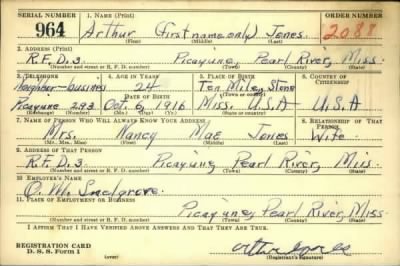 SERIAL NUMBER 1. NAME (Print) ORDER NUMBER
964 Arthur (first name only) Jones 2088
(First) (Middle) (Last)
2. ADDRESS (Print)
R.F.D. 3 Picayune, Pearl River, Miss.
(Number and street or R. F. D. number) (Town) (County) (State)
3. TELEPHONE 4. AGE IN YEARS 5. PLACE OF BIRTH 6. COUNTRY OF CITIZENSHIP
Neighbor-business 24 Ten Mile, Stone
DATE OF BIRTH (Town or county)
Picayune 293 Oct. 6, 1916 Miss. U.S.A U.S.A
7. NAME OF PERSON WHO WILL ALWAYS KNOW YOUR ADDRESS 8. RELATIONSHIP OF THAT PERSON
Mrs. Nancy Mae Jones Wife
(Mr., Mrs., Miss) (First) (Middle) (Last)
9. ADDRESS OF THAT PERSON
R.F.D. 3 Picayune, Pearl River, Miss.
(Number and street or R. F. D. number) (Town) (County) (State)
10. EMPLOYER'S NAME
11. PLACE OF EMPLOYMENT OR BUSINESS
Picayune, Pearl River, Miss.
(Number and street or R. F. D. number) (Town) (County) (State)
I AFFIRM THAT I HAVE VERIFIED ABOVE ANSWERS AND THAT THEY ARE TRUE.
REGISTRATION CARD
D. S. S. Form 1 (Registrant's signature)